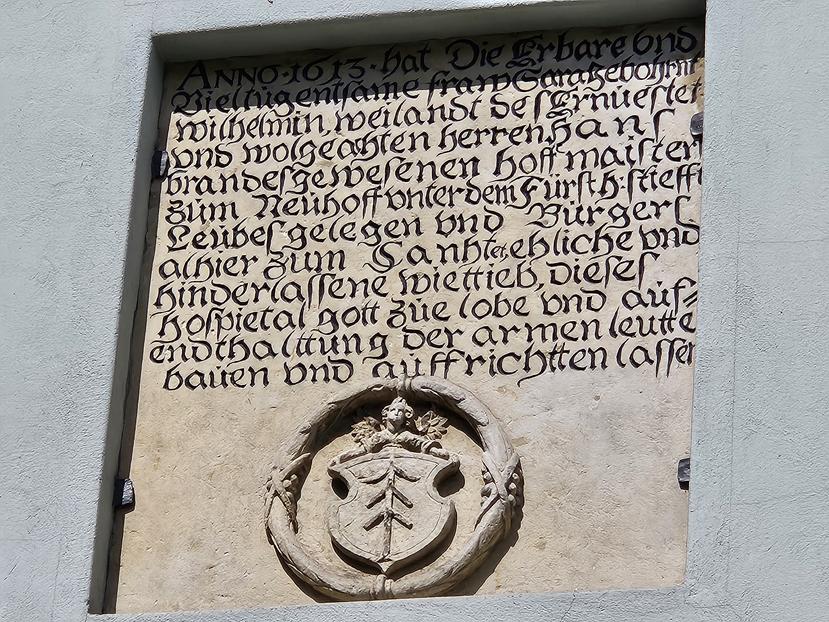 ANNO · 1613 · hat Die Erbare vnd
Vieltugentsame fraw Sara gebohrnt
wilhelmin, weilandt des Ernuestet
vnd wolgeachten herren Hans
brandes gewesenen hoffmaister
zum Neuhoff vnter dem Fürstl: stiefft
Leubes gelegen vnd Burgers
alhier zum Canht et. ehliche vnd
hinderlassene wiettieb, dieses
hospietal gott zue lobe vnd auf=
endthalttung der armen leutte
bauen vnd auffrichtten lassen